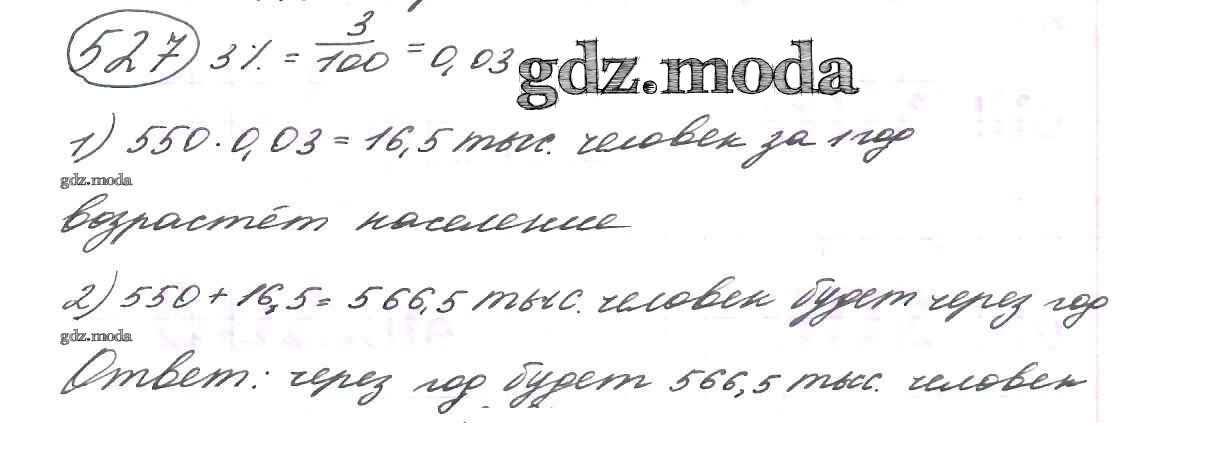 527 3% = 3/100 = 0,03 gdz.moda
1) 550 · 0,03 = 16,5 тыс. человек за 1 год
gdz.moda
возрастёт население
2) 550 + 16,5 = 566,5 тыс. человек будет через год
gdz.moda
Ответ: через год будет 566,5 тыс. человек